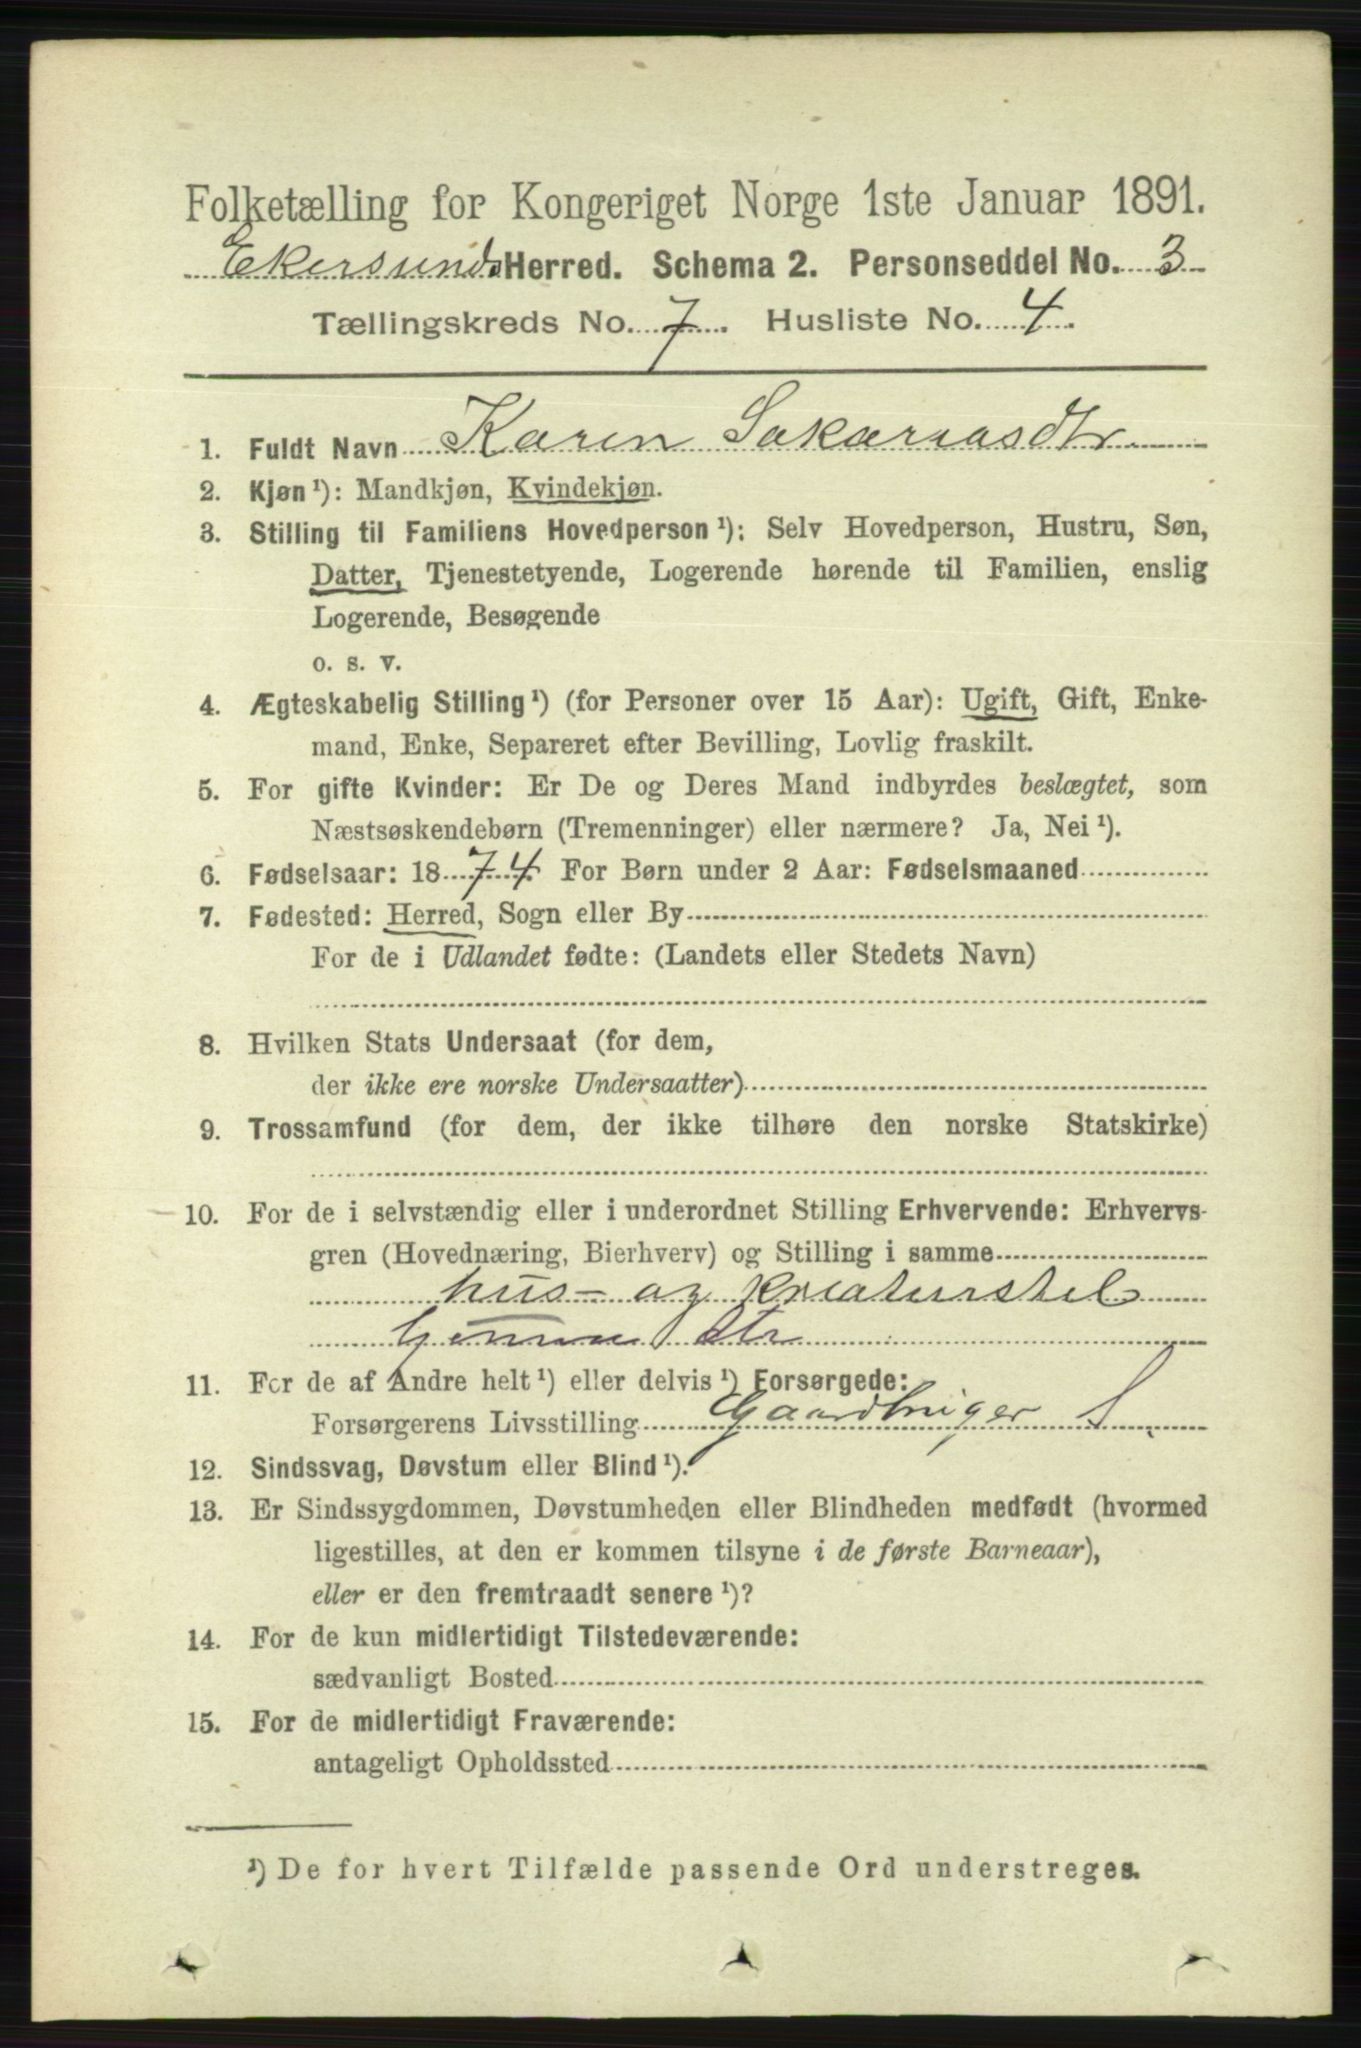 Folketælling for Kongeriget Norge 1ste Januar 1891.
Ekersunds Herred. Schema 2. Personseddel No. 3
Tællingskreds No. 7. Husliste No. 4.
1. Fuldt Navn Karen Sakariasdtr.
2. Kjøn¹): Mandkjøn, Kvindekjøn.
3. Stilling til Familiens Hovedperson¹): Selv Hovedperson, Hustru, Søn,
Datter, Tjenestetyende, Logerende hørende til Familien, enslig
Logerende, Besøgende
o. s. v.
4. Ægteskabelig Stilling¹) (for Personer over 15 Aar): Ugift, Gift, Enke-
mand, Enke, Separeret efter Bevilling, Lovlig fraskilt.
5. For gifte Kvinder: Er De og Deres Mand indbyrdes beslægtet, som
Næstsøskendebørn (Tremenninger) eller nærmere? Ja, Nei¹).
6. Fødselsaar: 1874. For Børn under 2 Aar: Fødselsmaaned
7. Fødested: Herred, Sogn eller By
For de i Udlandet fødte: (Landets eller Stedets Navn)
8. Hvilken Stats Undersaat (for dem,
der ikke ere norske Undersaatter)
9. Trossamfund (for dem, der ikke tilhøre den norske Statskirke)
10. For de i selvstændig eller i underordnet Stilling Erhvervende: Erhvervs-
gren (Hovednæring, Bierhverv) og Stilling i samme
hus- og kreaturstel
dtr
11. For de af Andre helt¹) eller delvis¹) Forsørgede:
Forsørgerens Livsstilling Gaardbruger S.
12. Sindssvag, Døvstum eller Blind¹).
13. Er Sindssygdommen, Døvstumheden eller Blindheden medfødt (hvormed
ligestilles, at den er kommen tilsyne i de første Barneaar),
eller er den fremtraadt senere¹)?
14. For de kun midlertidigt Tilstedeværende:
sædvanligt Bosted
15. For de midlertidigt Fraværende:
antageligt Opholdssted
¹) De for hvert Tilfælde passende Ord understreges.